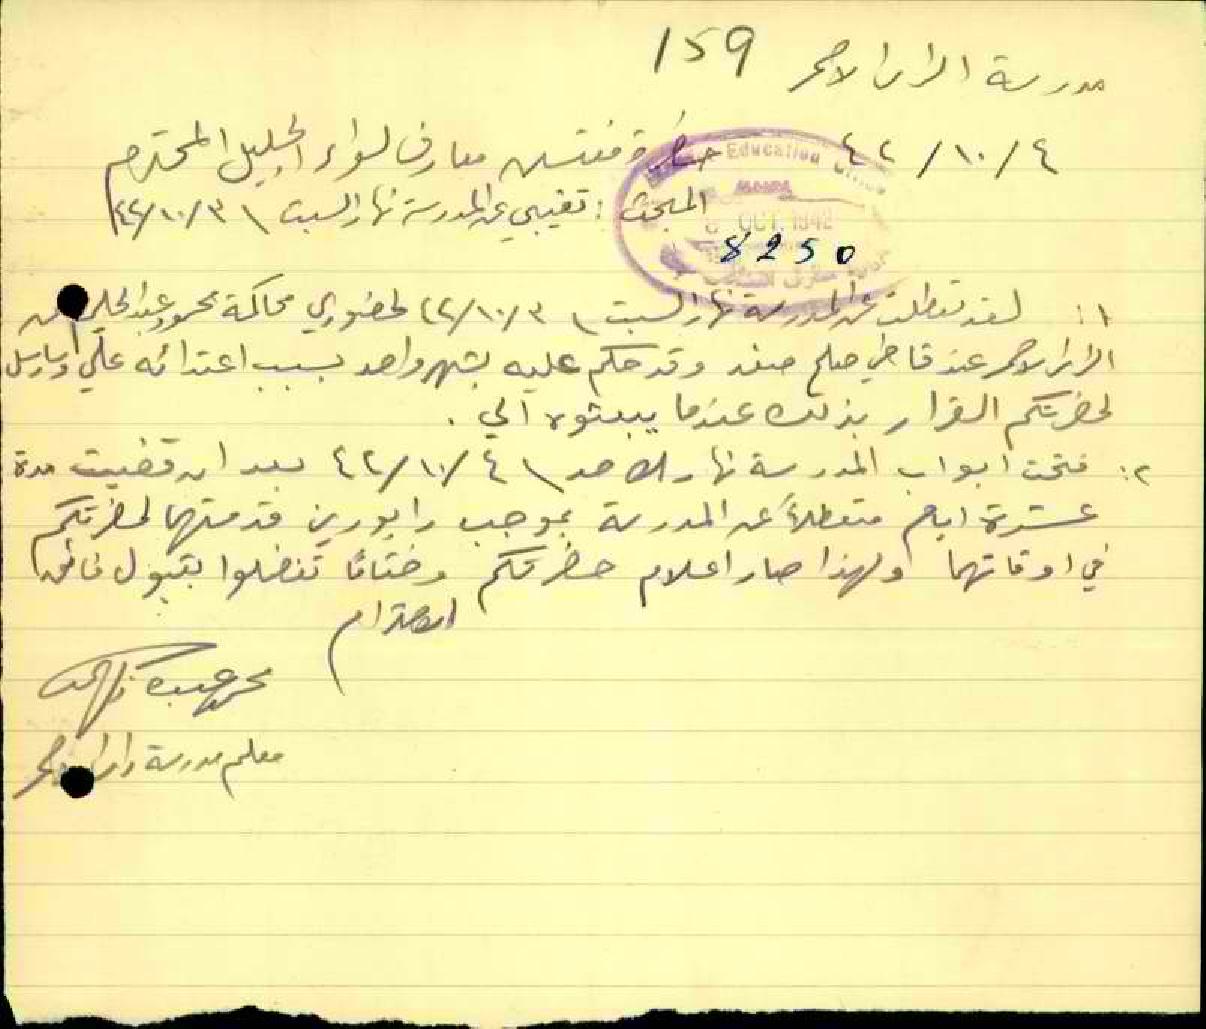 159
مدرسة الراس الاحمر
٤٢/١٠/٤
حضرة مفتش معارف لواء الجليل المحترم
Education Office
8 OCT. 1942
8250
المبحث : تغيبي عن المدرسة نهار السبت ٤٢/١٠/٣
١: لقد تعطلت عن المدرسة نهار السبت ٤٢/١٠/٣ لحضوري محاكمة محمود عبد الحليم من
الراس الاحمر عند قاضي صلح صفد وقد حكم عليه بشهر واحد بسبب اعتدائه علي وسارسل
لحضرتكم القرار بذلك عندما يبعثوه الي .
٢: فتحت ابواب المدرسة نهار الاحد ٤٢/١٠/٤ بعد ان قضيت مدة
عشرة ايام متعطلاً عن المدرسة بموجب رابورين قدمتهما لحضرتكم
في اوقاتهما ولهذا صار اعلام حضرتكم وختامًا تفضلوا بقبول فائق
الاحترام
معلم مدرسة الراس الاحمر